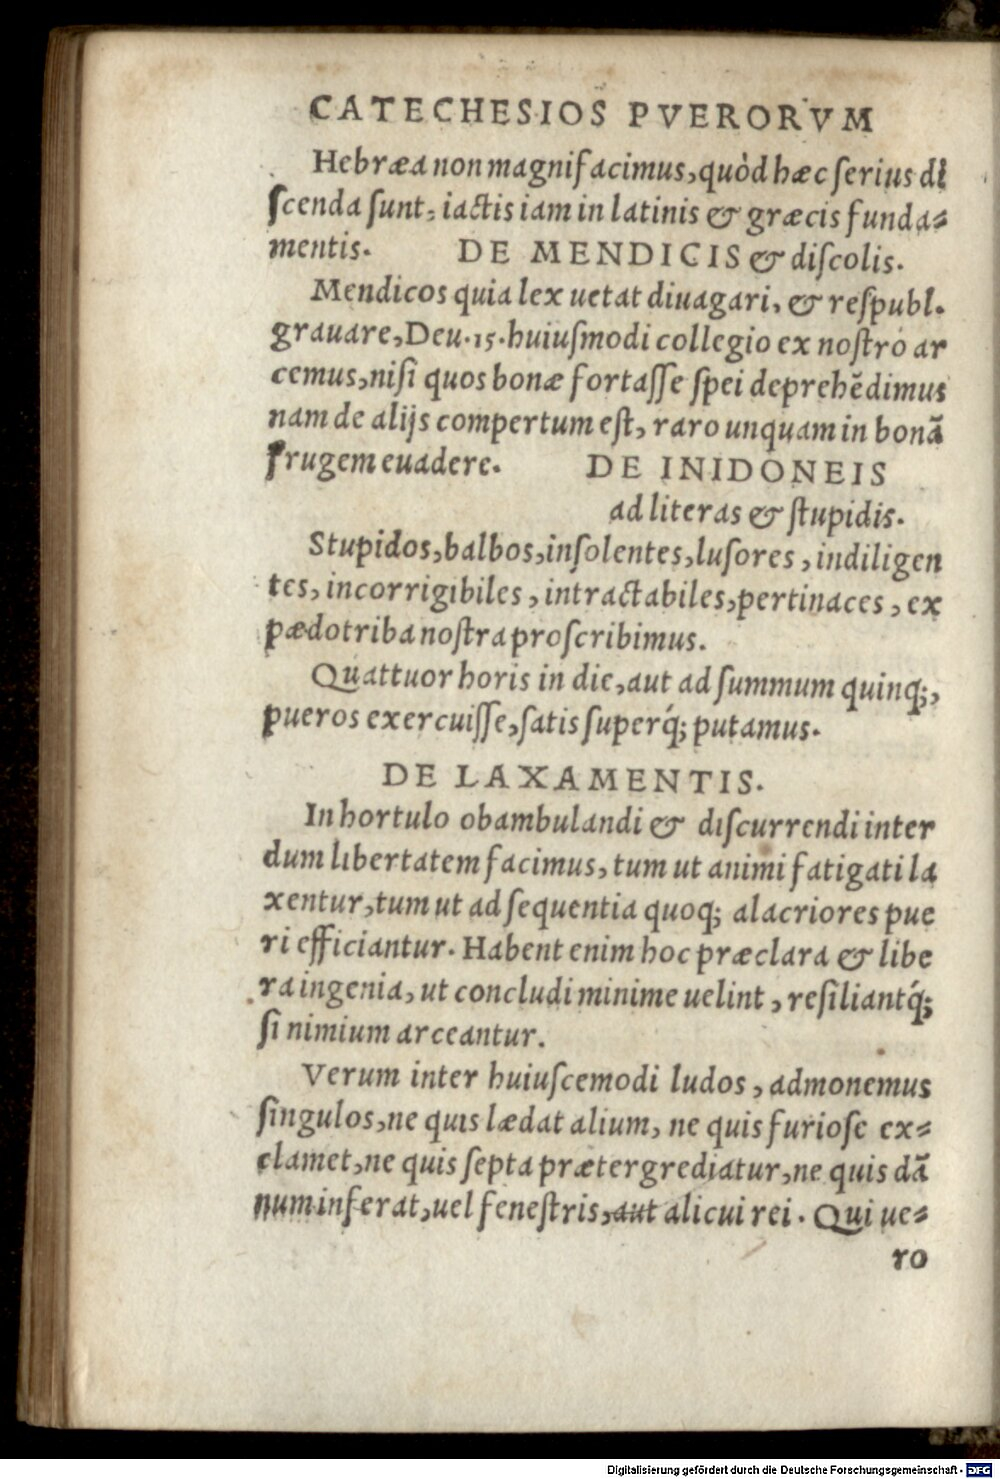 CATECHESIOS PVERORVM
Hebræa non magnifacimus, quòd hæc ſerius di
ſcenda ſunt, iactis iam in latinis & græcis funda⸗
mentis. DE MENDICIS & diſcolis.
Mendicos quia lex uetat diuagari, & reſpubl.
grauare, Deu.15. huiuſmodi collegio ex noſtro ar
cemus, niſi quos bonæ fortaſſe ſpei deprehẽdimus
nam de alijs compertum eſt, raro unquam in bonã
frugem euadere. DE INIDONEIS
ad literas & ſtupidis.
Stupidos, balbos, inſolentes, luſores, indiligen
tes, incorrigibiles, intractabiles, pertinaces, ex
pædotriba noſtra proſcribimus.
Quattuor horis in die, aut ad ſummum quinq;,
pueros exercuiſſe, ſatis ſuperq́; putamus.
DE LAXAMENTIS.
In hortulo obambulandi & diſcurrendi inter
dum libertatem facimus, tum ut animi fatigati la
xentur, tum ut ad ſequentia quoq; alacriores pue
ri efficiantur. Habent enim hoc præclara & libe
ra ingenia, ut concludi minime uelint, reſiliantq́;
ſi nimium arceantur.
Verum inter huiuſcemodi ludos, admonemus
ſingulos, ne quis lædat alium, ne quis furioſe ex⸗
clamet, ne quis ſepta prætergrediatur, ne quis dã
num inferat, uel feneſtris, aut alicui rei. Qui ue⸗
ro
Digitalisierung gefördert durch die Deutsche Forschungsgemeinschaft - DFG